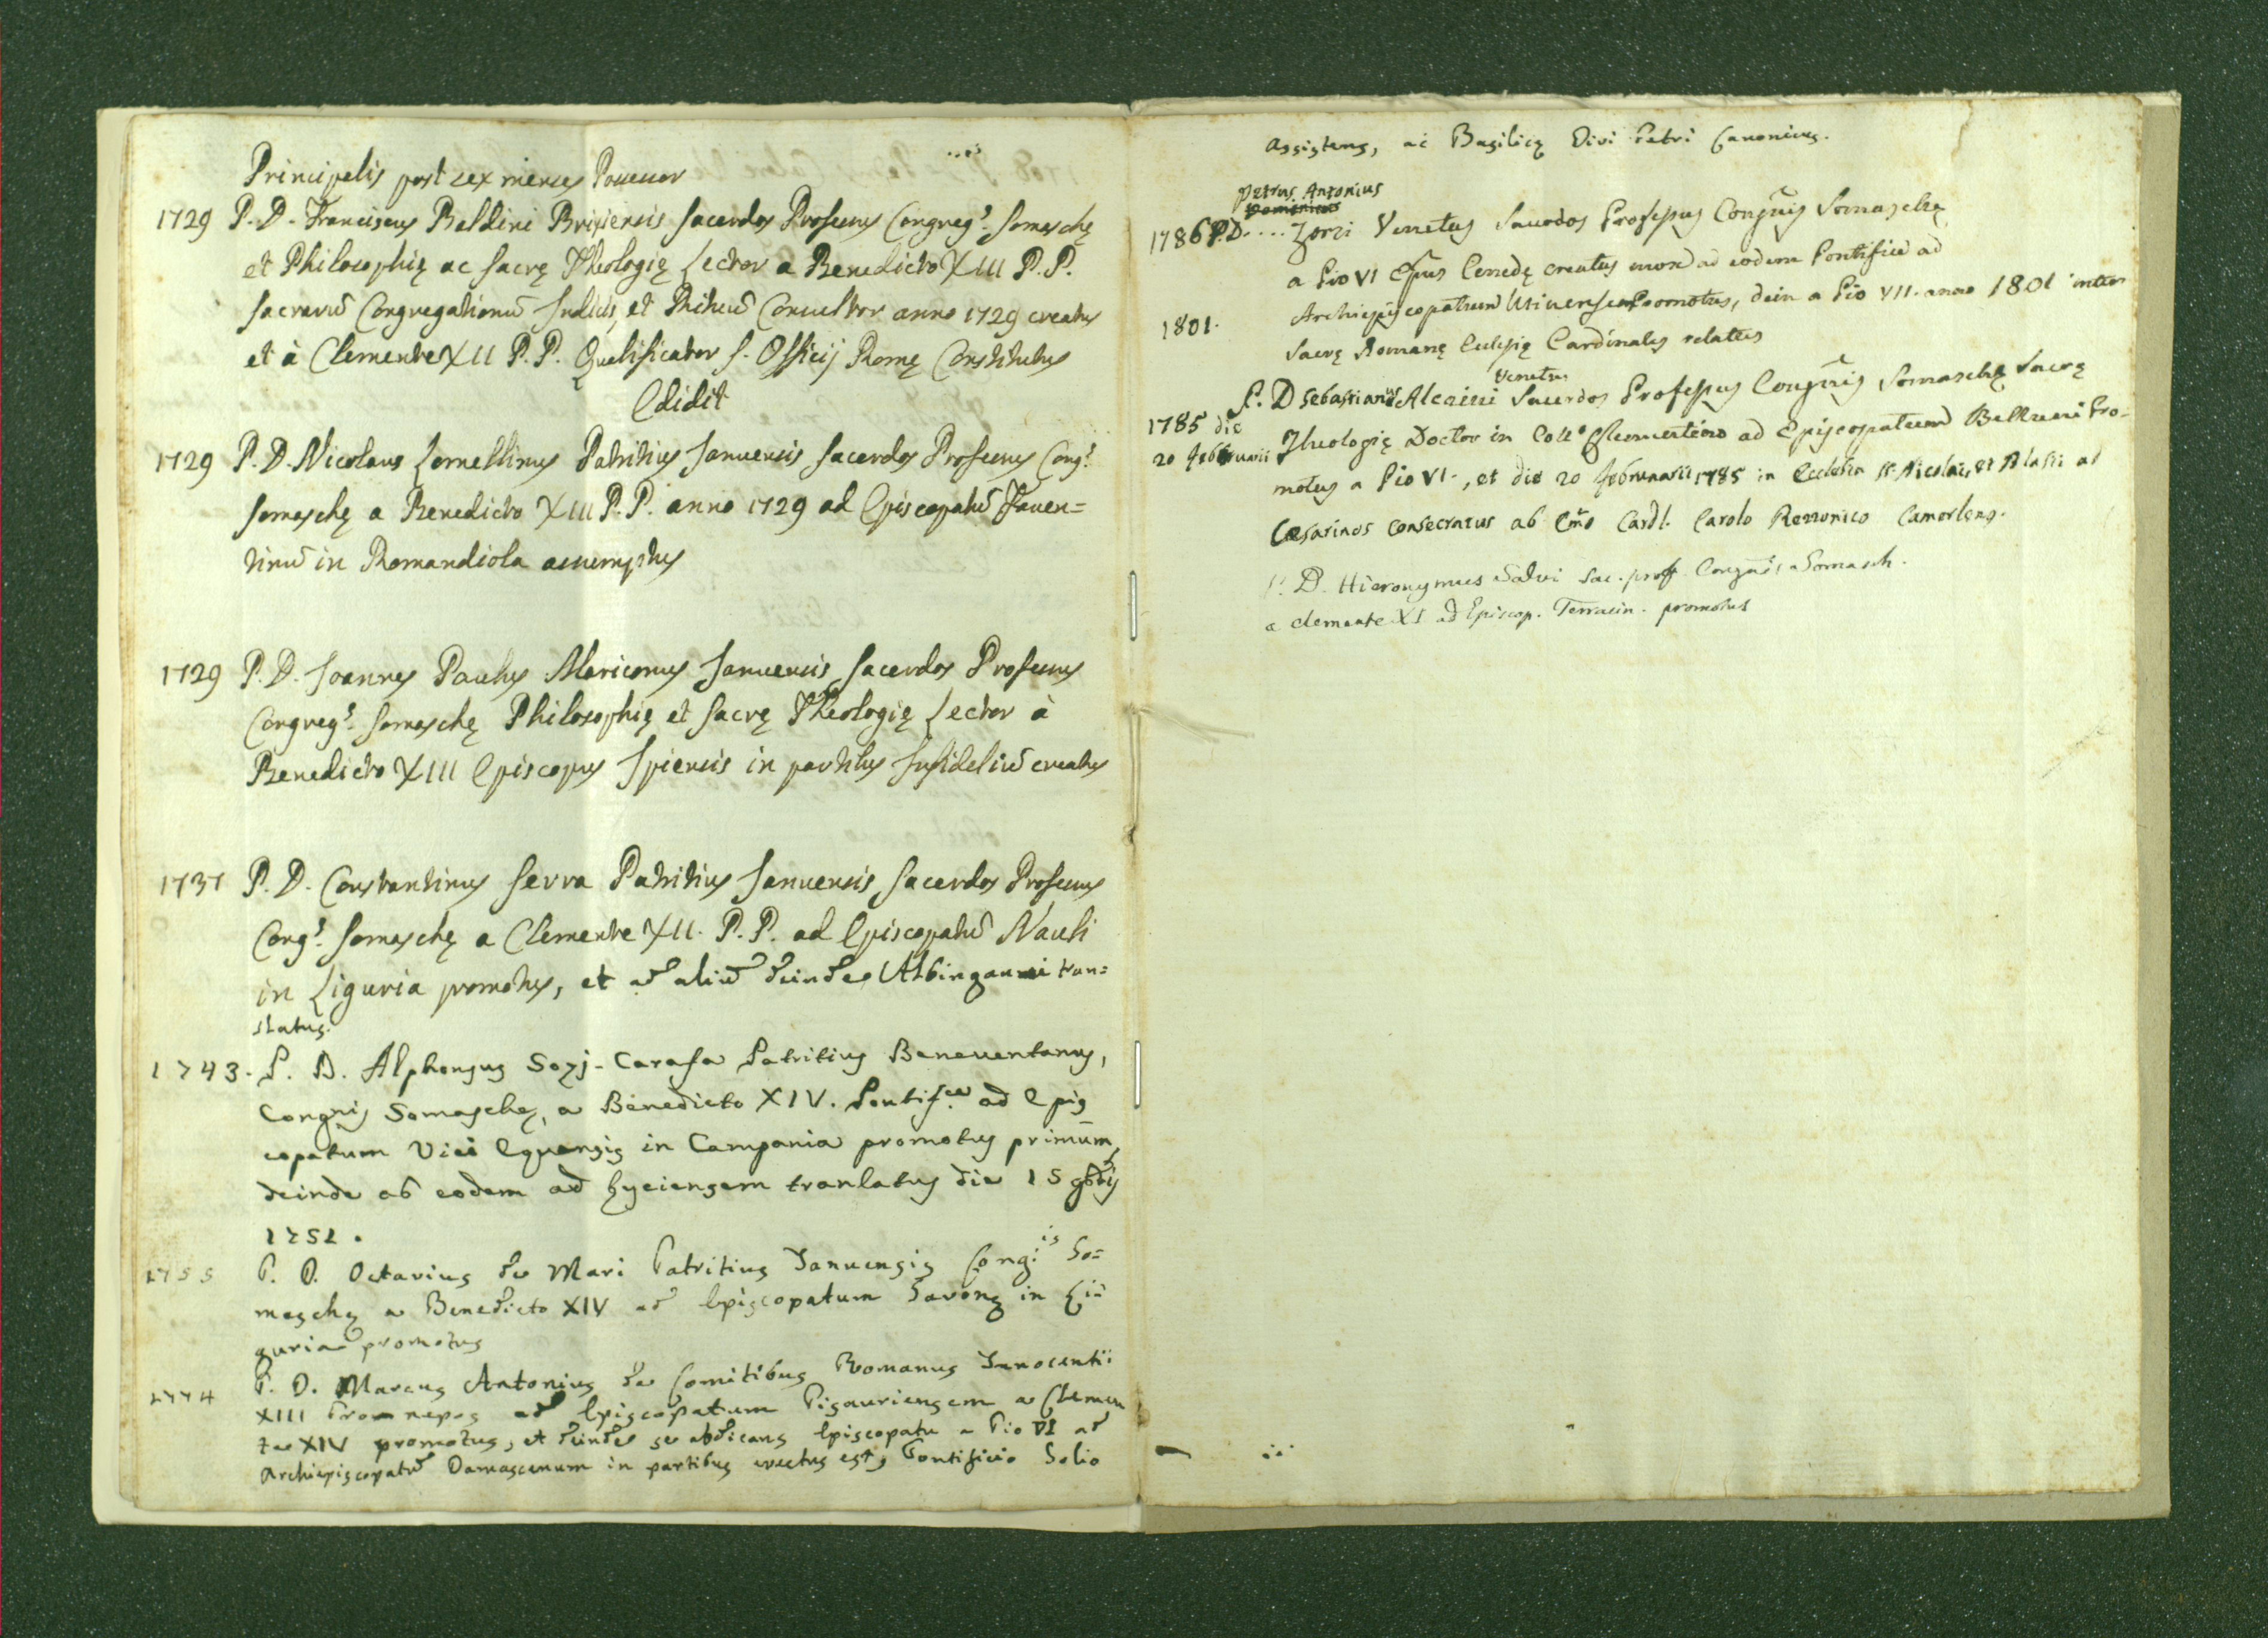 Principalis post sex menses Provisor
1729 P. D. Franciscus Baldini Brixiensis Sacerdos Professus Congreg.s Somaschę
et Philosophię ac Sacrę Theologię Lector a Benedicto XIII P. P.
Sacrarū Congregationū Indicis, et Rituū Consultor anno 1729 creatus
et à Clemente XII P. P. Qualificator S. Officij Romę Constitutus
Edidit
1729 P. D. Nicolaus Lomellinus Patritius Januensis Sacerdos Professus Cong.s
Somaschę a Benedicto XIII P. P. anno 1729 ad Episcopatū Faven=
tinū in Romandiola assumptus
1729 P. D. Joannes Paulus Mariconus Januensis Sacerdos Professus
Congreg.s Somaschę Philosophię et Sacrę Theologię Lector à
Benedicto XIII Episcopus Ipiensis in partibus Infideliū creatus
1737 P. D. Constantinus Serra Patritius Januensis Sacerdos Professus
Cong.s Somaschę a Clemente XII. P. P. ad Episcopatū Nauli
in Liguria promotus, et ad aliū deinde Albingauni tran=
slatus.
1743. P. D. Alphonsus Sozj-Carafa Patritius Beneventanus,
Congnis Somaschę, a Benedicto XIV. Pontif.ce ad Epis
copatum Vici Equensis in Campania promotus primūm,
deinde ab eodem ad Lyciensem tranlatus die 15 9bris
1751.
1755 P. D. Octavius de Mari Patritius Januensis Cong.is So=
maschę a Benedicto XIV ad Episcopatum Savonę in Li=
guria promotus
1774 P. D. Marcus Antonius de Comitibus Romanus Innocentii
XIII Pronepos ad Episcopatum Pisauriensem a Clemen
te XIV promotus, et deinde se abdicans Episcopatu a Pio VI ad
Archiepiscopatū Damascenum in partibus evectus est, Pontificio Solio
Assistens, ac Basilicę Divi Petri Canonicus.
Petrus Antonius
1786 P. D. .... Zorzi Venetus Sacerdos Professus Congñis Somaschę
a Pio VI Epus Cenedę creatus mox ad eodem Pontifice ad
1801. Archiepiscopatum Utinensem Promotus, dein a Pio VII. anno 1801 inter
Sacrę Romanę Eclesię Cardinales relatus
Venetus
P. D Sebastianus Alcaini Sacerdos Professus Congñis Somaschę Sacrę
1785 die
20 februarii Theologię Doctor in Coll.o Clementino ad Episcopatum Belluni Pro-
motus a Pio VI., et die 20 februarii 1785 in Ecclesia SS. Nicolai, et Blasii ad
Cæsarinos consecratus ab Emo Cardl. Carolo Rezzonico Camerleng.
P. D. Hieronymus Salvi Sac. prof. Congnis Somasch.
a clemente XI ad Episcop. Terracin. promotus